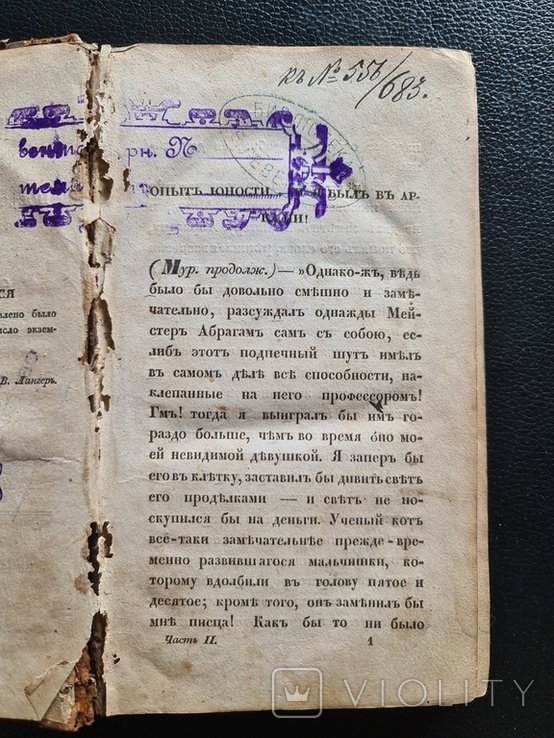 къ № 556/683.
рн. №
ОПЫТЪ ЮНОСТИ. БЫЛЪ ВЪ АР-
КАДІИ!
(Мур. продолж.) — »Однако-жъ, вѣдь
было бы довольно смѣшно и замѣ-
чательно, разсуждалъ однажды Мей-
стеръ Абрагамъ самъ съ собою, ес-
либъ этотъ подпечный шутъ имѣлъ
въ самомъ дѣлѣ всѣ способности, на-
клепанные на него профессоромъ!
Гмъ! тогда я выигралъ бы имъ го-
раздо больше, чѣмъ во время óно мо-
ей невидимой дѣвушкой. Я заперъ бы
его въ клѣтку, заставилъ бы дивить свѣтъ
его продѣлками — и свѣтъ не по-
скупился бы на деньги. Ученый котъ
всё-таки замѣчательнѣе прежде-вре-
менно развившагося мальчишки, ко-
торому вдолбили въ голову пятое и
десятое; кромѣ того, онъ замѣнилъ бы
мнѣ писца! Какъ бы то ни было
Часть II. 1
СЯ
влено было
исло экзем-
В. Лангеръ.
VIOLITY